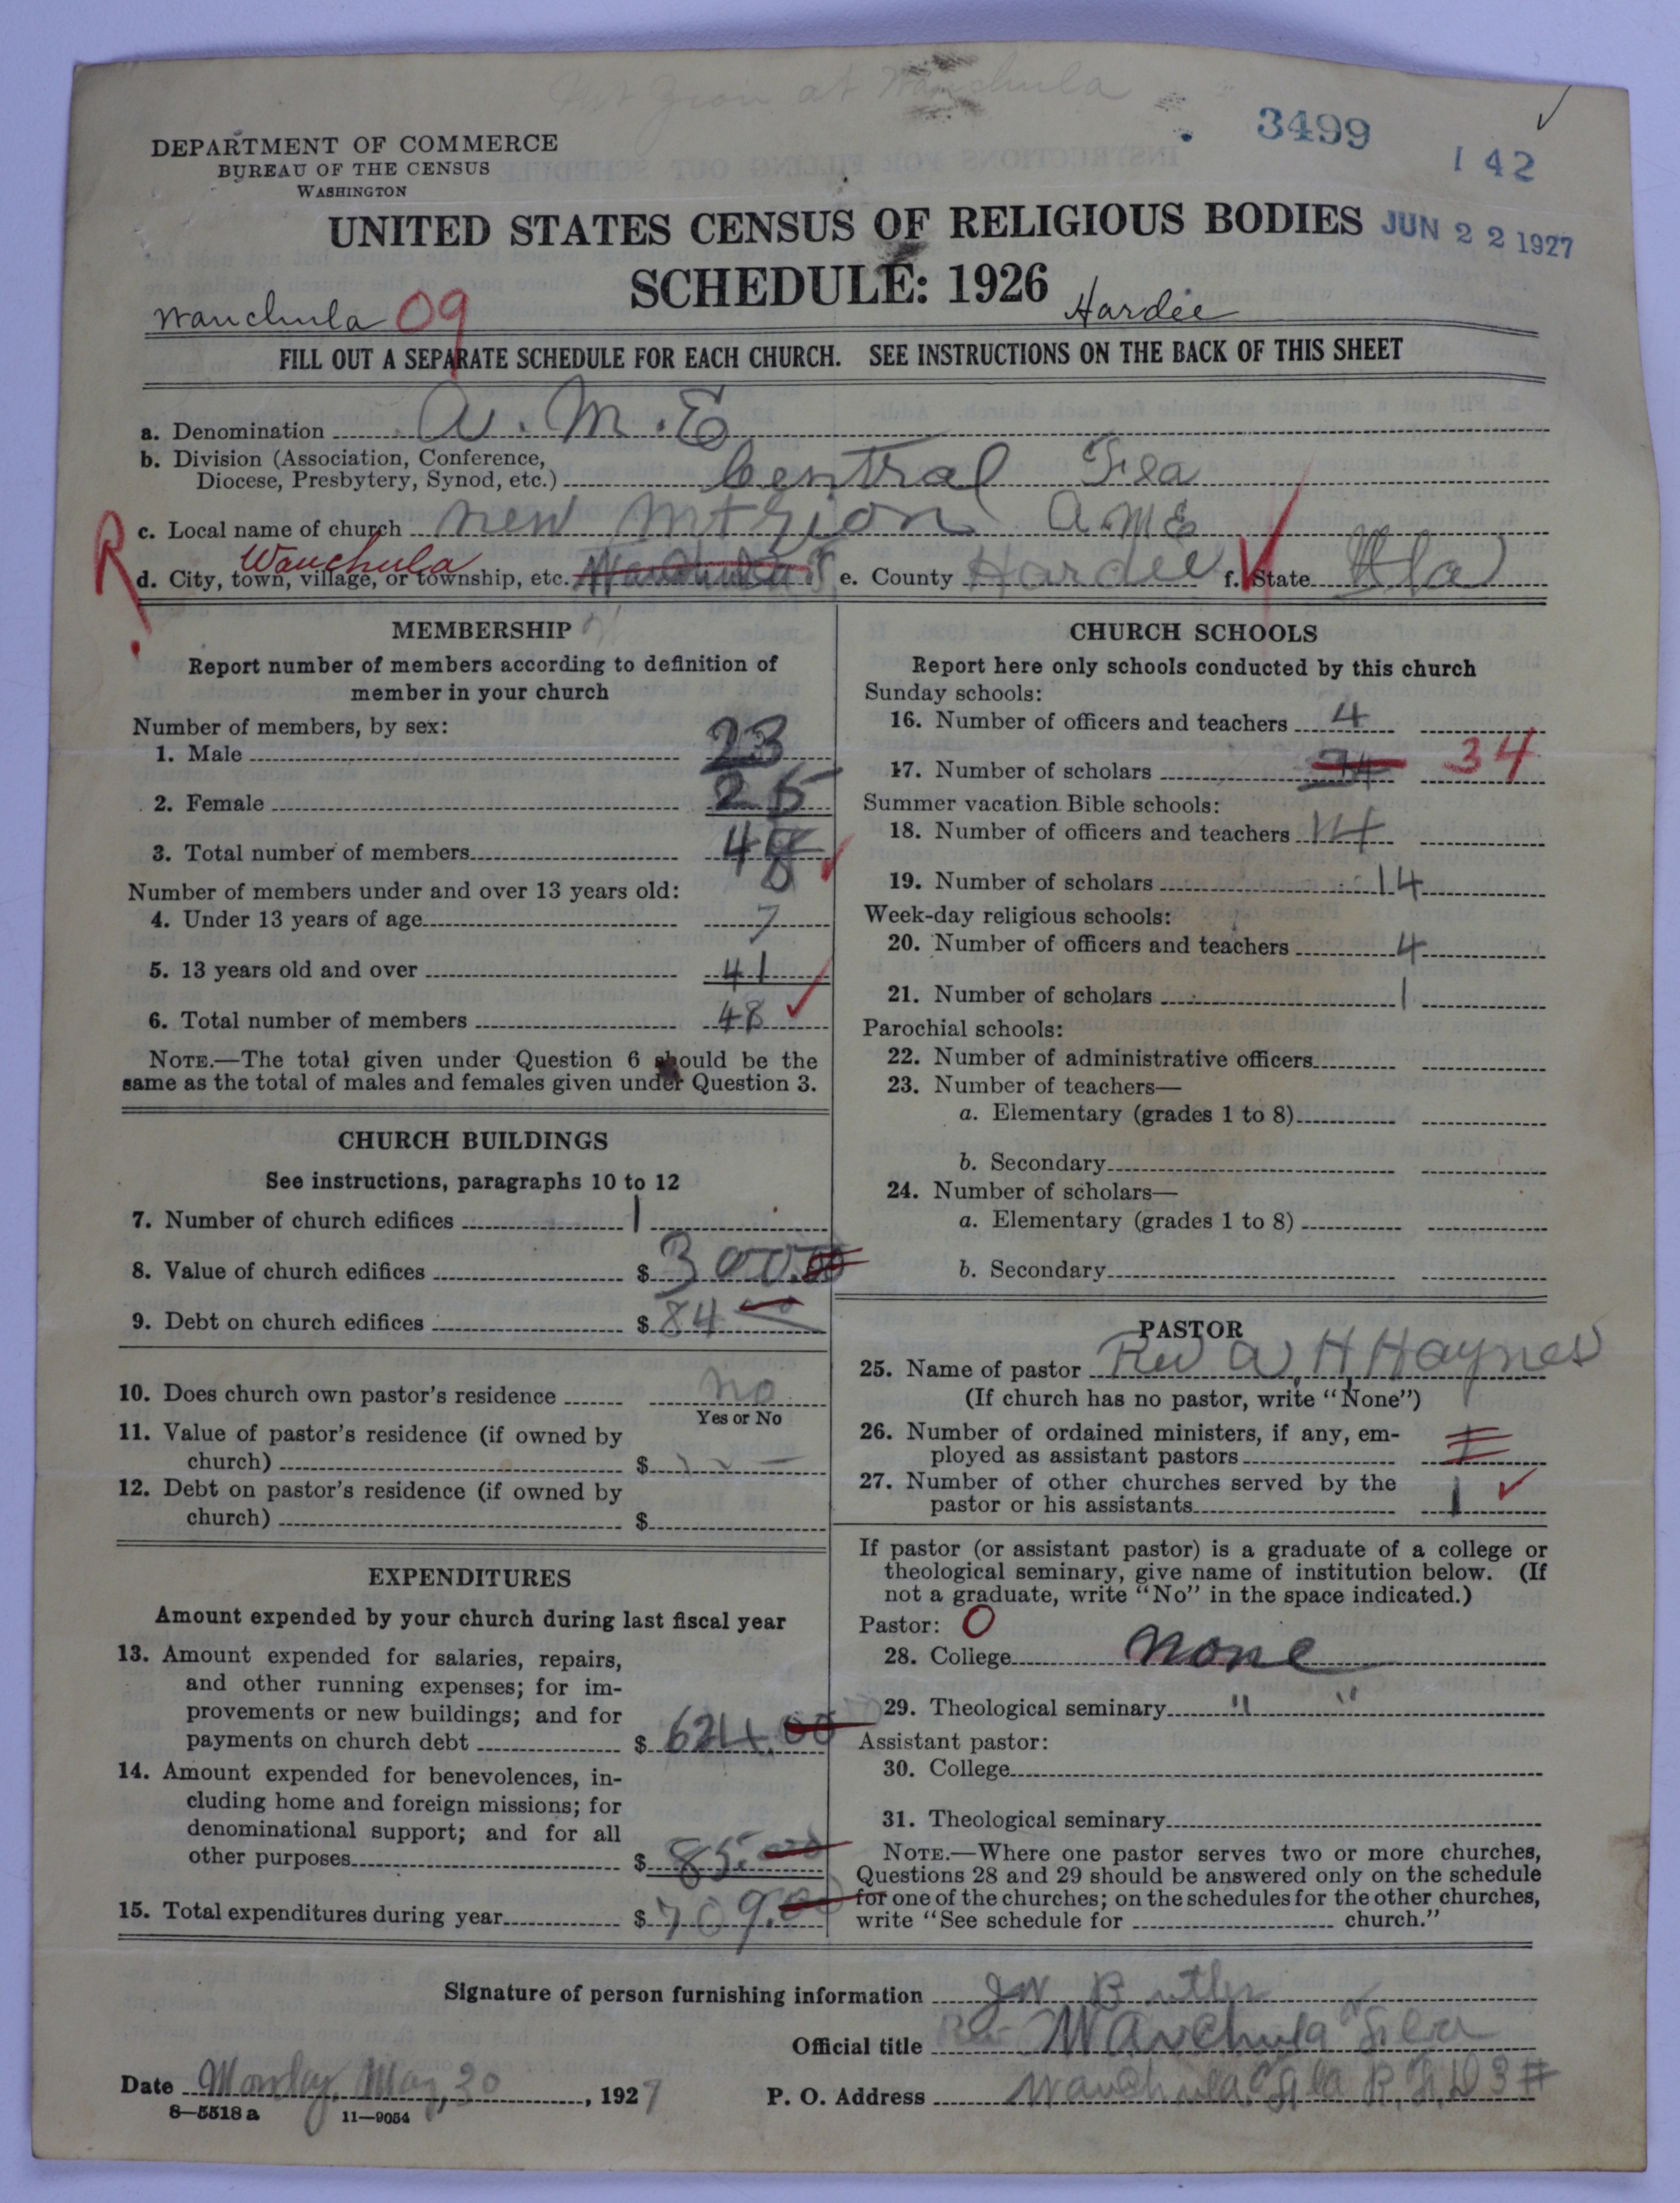 Mt Zion at Wauchula
3499
142
DEPARTMENT OF COMMERCE
BUREAU OF THE CENSUS
WASHINGTON
UNITED STATES CENSUS OF RELIGIOUS BODIES JUN 22 1927
SCHEDULE: 1926
Wauchula 09 Hardee
FILL OUT A SEPARATE SCHEDULE FOR EACH CHURCH. SEE INSTRUCTIONS ON THE BACK OF THIS SHEET
a. Denomination A. M. E
b. Division (Association, Conference,
Diocese, Presbytery, Synod, etc.) Central Fla
R c. Local name of church New Mt Zion A.M.E
Wauchula
d. City, town, village, or township, etc. e. County Hardee f. State Fla
MEMBERSHIP
Report number of members according to definition of
member in your church
Number of members, by sex:
1. Male 23
2. Female 25
3. Total number of members 48
Number of members under and over 13 years old:
4. Under 13 years of age 7
5. 13 years old and over 41
6. Total number of members 48
NOTE.—The total given under Question 6 should be the
same as the total of males and females given under Question 3.
CHURCH BUILDINGS
See instructions, paragraphs 10 to 12
7. Number of church edifices 1
8. Value of church edifices $ 300.00
9. Debt on church edifices $ 84
10. Does church own pastor's residence no
Yes or No
11. Value of pastor's residence (if owned by
church) $
12. Debt on pastor's residence (if owned by
church) $
EXPENDITURES
Amount expended by your church during last fiscal year
13. Amount expended for salaries, repairs,
and other running expenses; for im-
provements or new buildings; and for
payments on church debt $ 624.00
14. Amount expended for benevolences, in-
cluding home and foreign missions; for
denominational support; and for all
other purposes $ 85.00
15. Total expenditures during year $ 709.00
CHURCH SCHOOLS
Report here only schools conducted by this church
Sunday schools:
16. Number of officers and teachers 4
17. Number of scholars 34 34
Summer vacation Bible schools:
18. Number of officers and teachers
19. Number of scholars 14
Week-day religious schools:
20. Number of officers and teachers 4
21. Number of scholars 1
Parochial schools:
22. Number of administrative officers
23. Number of teachers—
a. Elementary (grades 1 to 8)
b. Secondary
24. Number of scholars—
a. Elementary (grades 1 to 8)
b. Secondary
PASTOR
25. Name of pastor Rev A. H Haynes
(If church has no pastor, write "None")
26. Number of ordained ministers, if any, em-
ployed as assistant pastors 1
27. Number of other churches served by the
pastor or his assistants 1
If pastor (or assistant pastor) is a graduate of a college or
theological seminary, give name of institution below. (If
not a graduate, write "No" in the space indicated.)
Pastor: O
28. College none
29. Theological seminary " "
Assistant pastor:
30. College
31. Theological seminary
NOTE.—Where one pastor serves two or more churches,
Questions 28 and 29 should be answered only on the schedule
for one of the churches; on the schedules for the other churches,
write "See schedule for church."
Signature of person furnishing information J W Butler
Official title Wauchula Fla
Date Monday, May, 30, 1927 P. O. Address Wauchula Fla R, F, D 3 #
8—5518a 11—9054